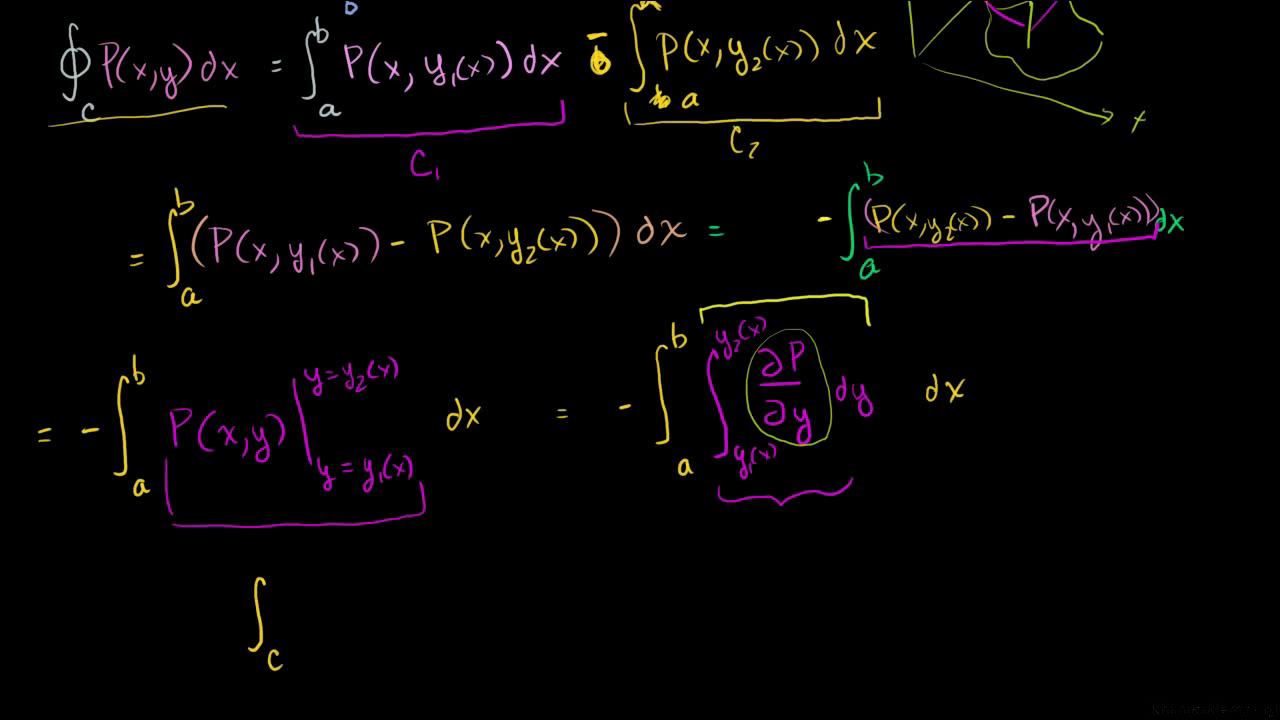 ∮_C P(x,y)dx = ∫_a^b P(x, y₁(x))dx - ∫_a P(x,y₂(x))dx
C₁ C₂ x
= ∫_a^b (P(x,y₁(x)) - P(x,y₂(x))) dx = - ∫_a^b (P(x,y₂(x)) - P(x,y₁(x)))dx
= - ∫_a^b P(x,y) |_{y=y₁(x)}^{y=y₂(x)} dx = - ∫_a^b ∫_{y₁(x)}^{y₂(x)} ∂P/∂y dy dx
∫_C